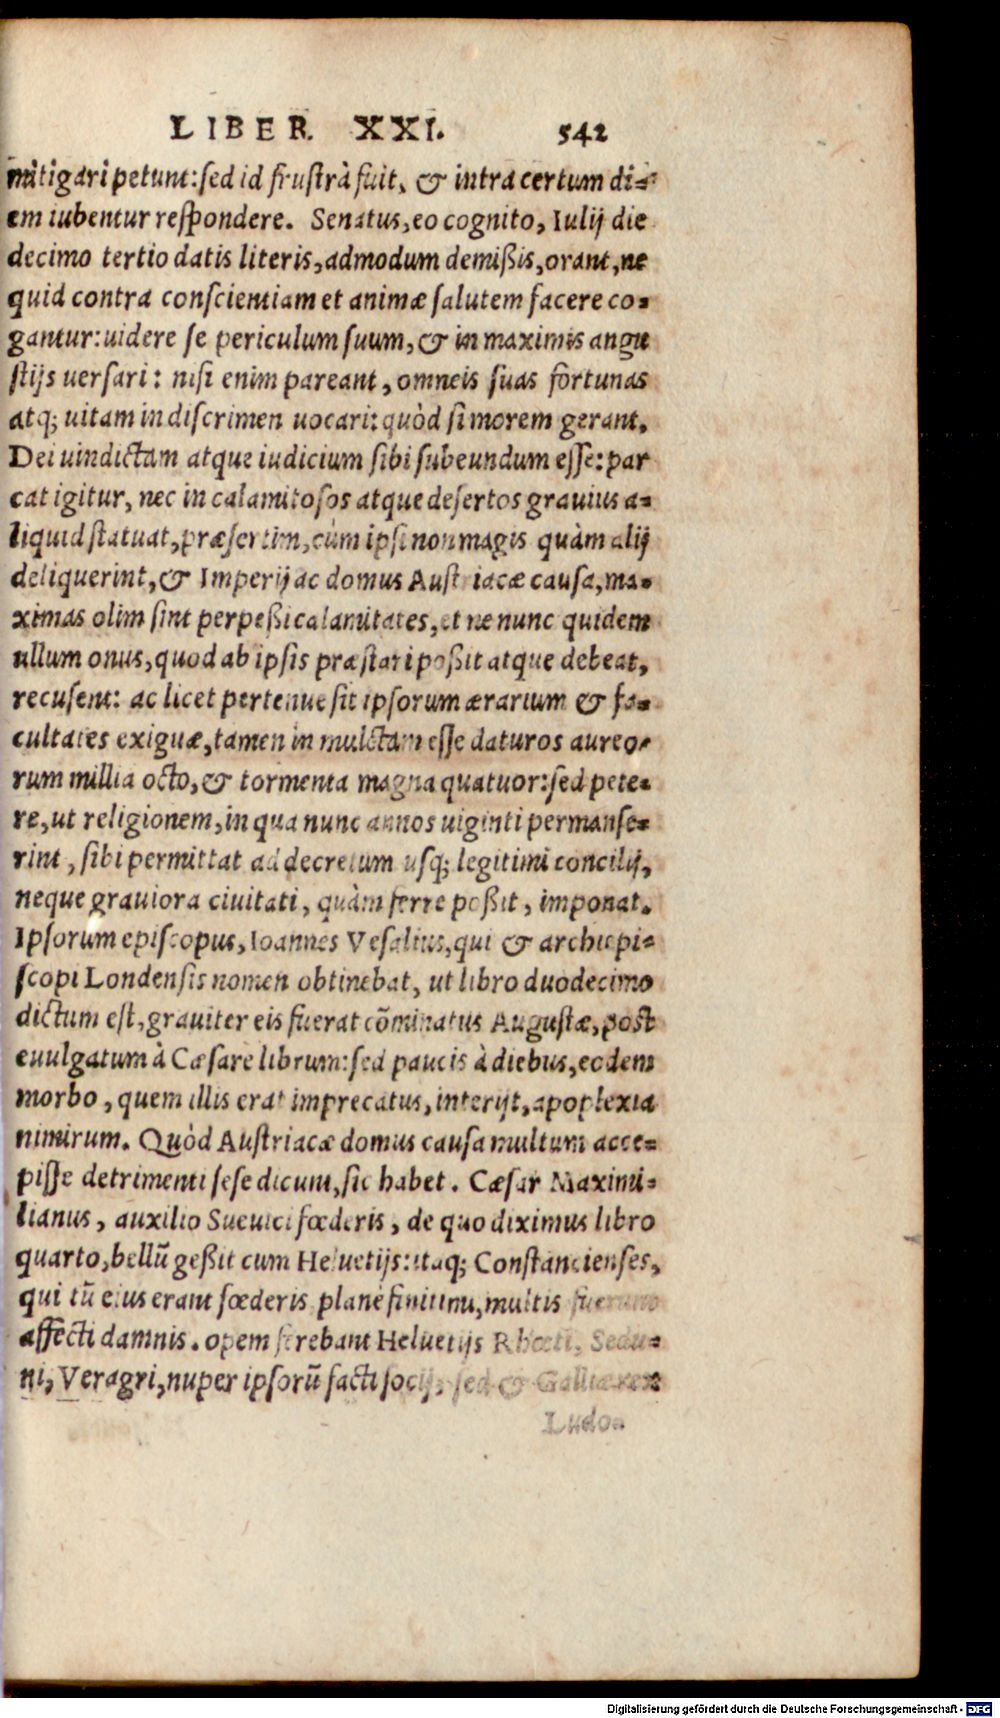 LIBER. XXI. 542
mitigari petunt: sed id frustrà fuit, & intra certum di-
em iubentur respondere. Senatus, eo cognito, Iulij die
decimo tertio datis literis, admodum demißis, orant, ne
quid contra conscientiam et animæ salutem facere co-
gantur: uidere se periculum suum, & in maximis angu
stijs uersari: nisi enim pareant, omneis suas fortunas
atq; uitam in discrimen uocari: quòd si morem gerant,
Dei uindictam atque iudicium sibi subeundum esse: par
cat igitur, nec in calamitosos atque desertos grauius a-
liquid statuat, præsertim, cùm ipsi non magis quàm alij
deliquerint, & Imperij ac domus Austriacæ causa, ma-
ximas olim sint perpeßi calamitates, et ne nunc quidem
ullum onus, quod ab ipsis præstari poßit atque debeat,
recusent: ac licet pertenue sit ipsorum ærarium & fa-
cultates exiguæ, tamen in mulctam esse daturos aureo-
rum millia octo, & tormenta magna quatuor: sed pete-
re, ut religionem, in qua nunc annos uiginti permanse-
rint, sibi permittat ad decretum usq; legitimi concilij,
neque grauiora ciuitati, quàm ferre poßit, imponat.
Ipsorum episcopus, Ioannes Vesalius, qui & archiepi-
scopi Londensis nomen obtinebat, ut libro duodecimo
dictum est, grauiter eis fuerat cõminatus Augustæ, post
euulgatum à Cæsare librum: sed paucis à diebus, eodem
morbo, quem illis erat imprecatus, interijt, apoplexia
nimirum. Quòd Austriacæ domus causa multum acce-
pisse detrimenti sese dicunt, sic habet. Cæsar Maximi-
lianus, auxilio Sueuici fœderis, de quo diximus libro
quarto, bellũ geßit cum Heluetijs: itaq; Constancienses,
qui tũ eius erant fœderis planè finitimi, multis fuerunt
affecti damnis. opem ferebant Heluetijs Rhœti, Sedu-
ni, Veragri, nuper ipsorũ facti socij, sed & Galliæ rex
Ludo-
Digitalisierung gefördert durch die Deutsche Forschungsgemeinschaft - DFG